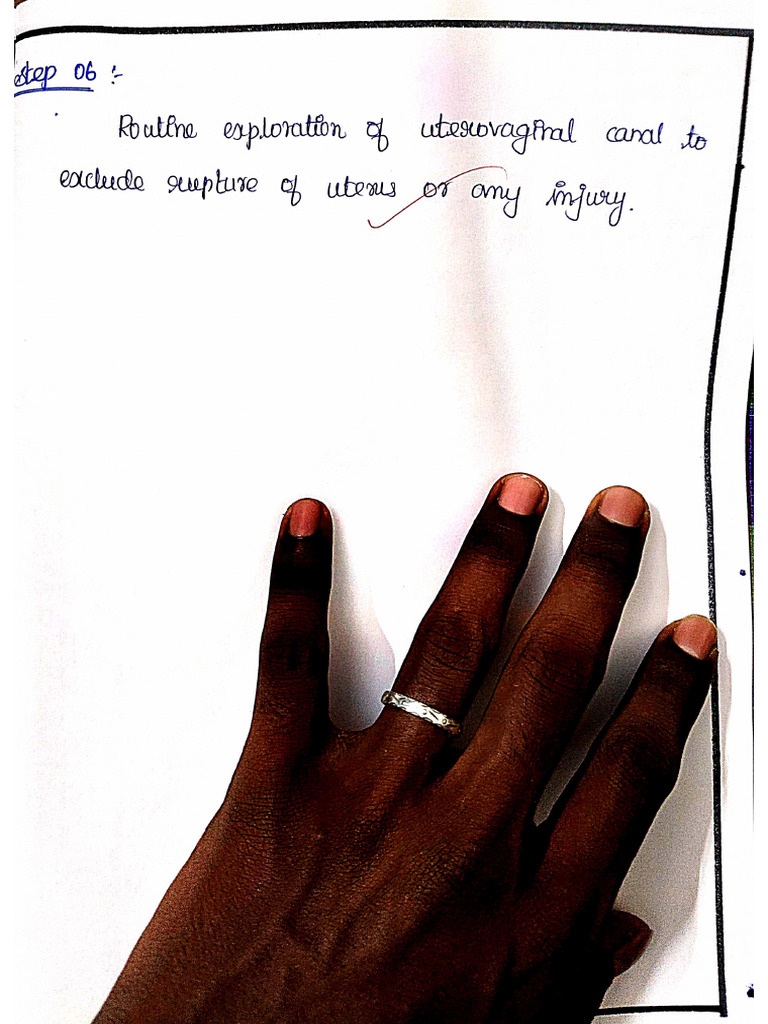 Step 06 :-
Routine exploration of uterovaginal canal to
exclude rupture of uterus or any injury.